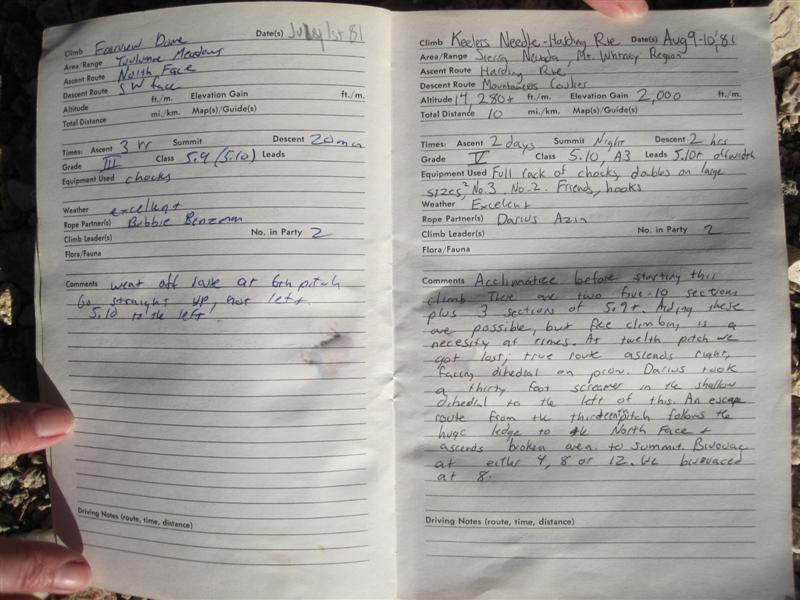 Climb Fairview Dome Date(s) July 1st 81
Area/Range Tuolumne Meadows
Ascent Route North Face
Descent Route SW face
Altitude ft./m. Elevation Gain ft./m.
Total Distance mi./km. Map(s)/Guide(s)
Times: Ascent 3 hr Summit Descent 20 min
Grade III Class 5.9 (5.10) Leads
Equipment Used chocks
Weather excellent
Rope Partner(s) Bebbie Benzom
Climb Leader(s) No. in Party 2
Flora/Fauna
Comments went off route at 6th pitch
Go straight up, not left
5.10 to the left
Driving Notes (route, time, distance)
Climb Keelers Needle-Harding Rte Date(s) Aug 9-10, '81
Area/Range Sierra Nevada, Mt. Whitney Region
Ascent Route Harding Rte
Descent Route Mountaineers Coulier
Altitude 14,280+ ft./m. Elevation Gain 2,000 ft./m.
Total Distance 10 mi./km. Map(s)/Guide(s)
Times: Ascent 2 days Summit Night Descent 2 hrs
Grade V Class 5.10, A3 Leads 5.10+ offwidth
Equipment Used Full rack of chocks, doubles on large
sizes, 2 No.3, No.2. Friends, hooks
Weather Excelent
Rope Partner(s) Darius Azin
Climb Leader(s) No. in Party 2
Flora/Fauna
Comments Acclimatize before starting this
climb. There are two five-10 sections
plus 3 sections of 5.9+. Aiding these
are possible, but free climbing is a
necesity at times. At twelth pitch we
got lost; true route ascends right,
facing dihedral on prow. Darius took
a thirty foot screamer in the shallow
dihedral to the left of this. An escape
route from the thirdteenth pitch follows the
huge ledge to the North Face &
ascends broken area to summit. Bivouac
at either 4, 8 or 12. We bivouaced
at 8.
Driving Notes (route, time, distance)